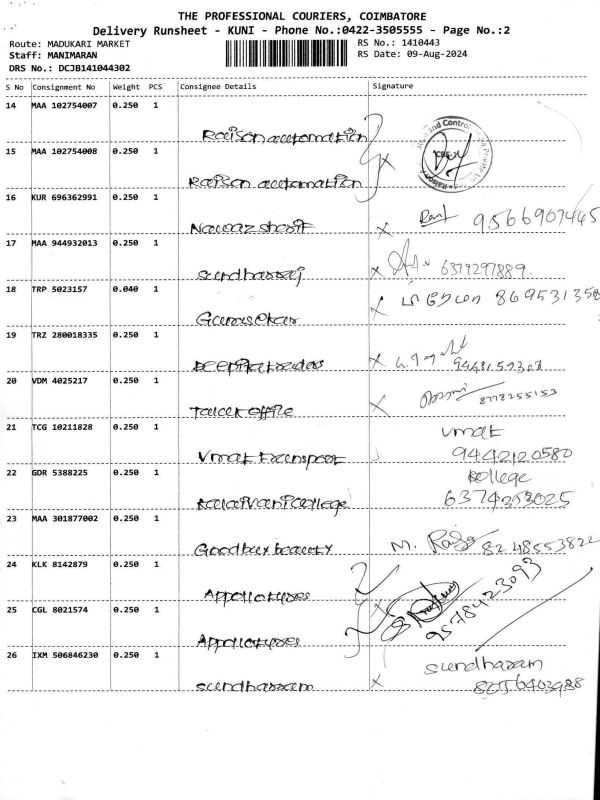 THE PROFESSIONAL COURIERS, COIMBATORE
Delivery Runsheet - KUNI - Phone No.:0422-3505555 - Page No.:2
Route: MADUKARI MARKET RS No.: 1410443
Staff: MANIMARAN RS Date: 09-Aug-2024
DRS No.: DCJB141044302
S No Consignment No Weight PCS Consignee Details Signature
14 MAA 102754007 0.250 1
Raison automation
15 MAA 102754008 0.250 1
Raison automation
16 KUR 696362991 0.250 1
Nawaz sharif 9566907445
17 MAA 944932013 0.250 1
sundharraj 6379297889
18 TRP 5023157 0.040 1
Gunasekar 869531358
19 TRZ 280018335 0.250 1
20 VDM 4025217 0.250 1
office 8778255153
21 TCG 10211828 0.250 1 vmat
vmat transport 9442120580
22 GDR 5388225 0.250 1 kollege
kalaivani college 6374353025
23 MAA 301877002 0.250 1
Goodbuy beauty M. 8248553822
24 KLK 8142879 0.250 1
Appollotyres
25 CGL 8021574 0.250 1 9578423093
Appollotyres
26 IXM 506846230 0.250 1 sundharam
sundharam